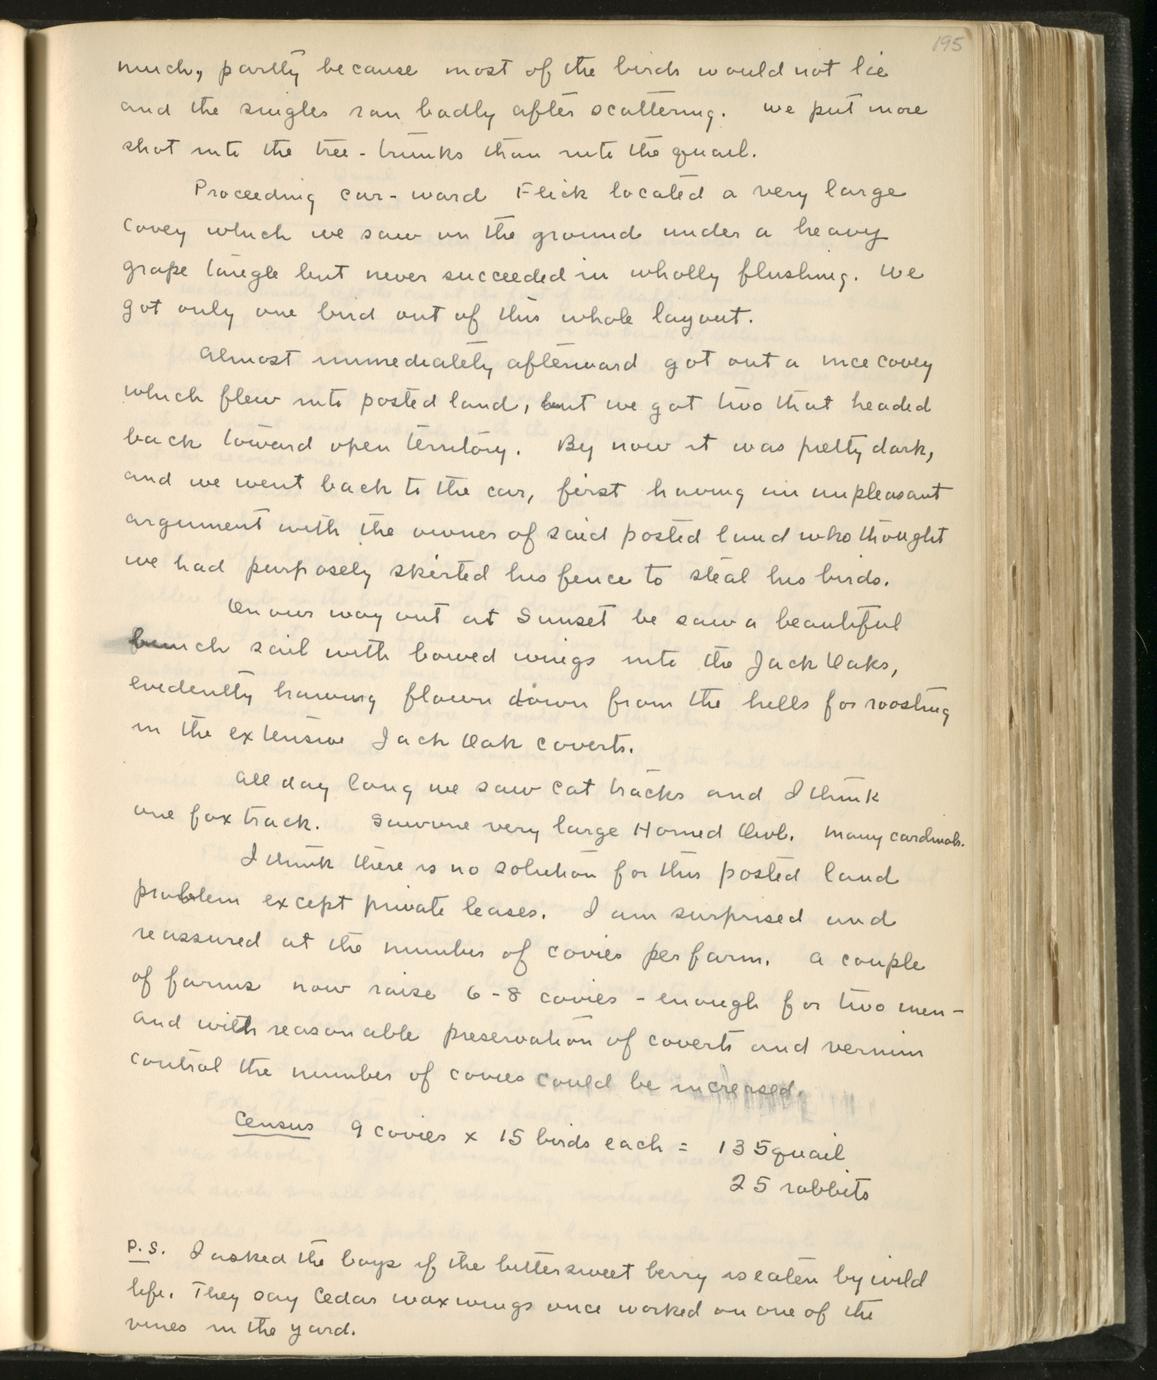 195
much, partly because most of the birds would not lie
and the singles ran badly after scattering. We put more
shot into the tree-trunks than into the quail.
Proceeding car-ward Flick located a very large
covey which we saw on the ground under a heavy
grape tangle but never succeeded in wholly flushing. We
got only one bird out of this whole layout.
Almost immediately afterward got out a nice covey
which flew into posted land, but we got two that headed
back toward open territory. By now it was pretty dark,
and we went back to the car, first having an unpleasant
argument with the owner of said posted land who thought
we had purposely skirted his fence to steal his birds.
On our way out at Sunset be saw a beautiful
bunch sail with bowed wings into the Jack Oaks,
evidently having flown down from the hills for roosting
in the extensive Jack Oak coverts.
All day long we saw cat tracks and I think
one fox track. Saw one very large Horned Owl. Many cardinals.
I think there is no solution for this posted land
problem except private leases. I am surprised and
reassured at the number of covies per farm. A couple
of farms now raise 6-8 covies - enough for two men -
and with reasonable preservation of coverts and vermin
control the number of covies could be increased.
Census 9 covies x 15 birds each = 135 quail
25 rabbits
P.S. I asked the boys if the bittersweet berry is eaten by wild
life. They say Cedar waxwings once worked on one of the
vines in the yard.